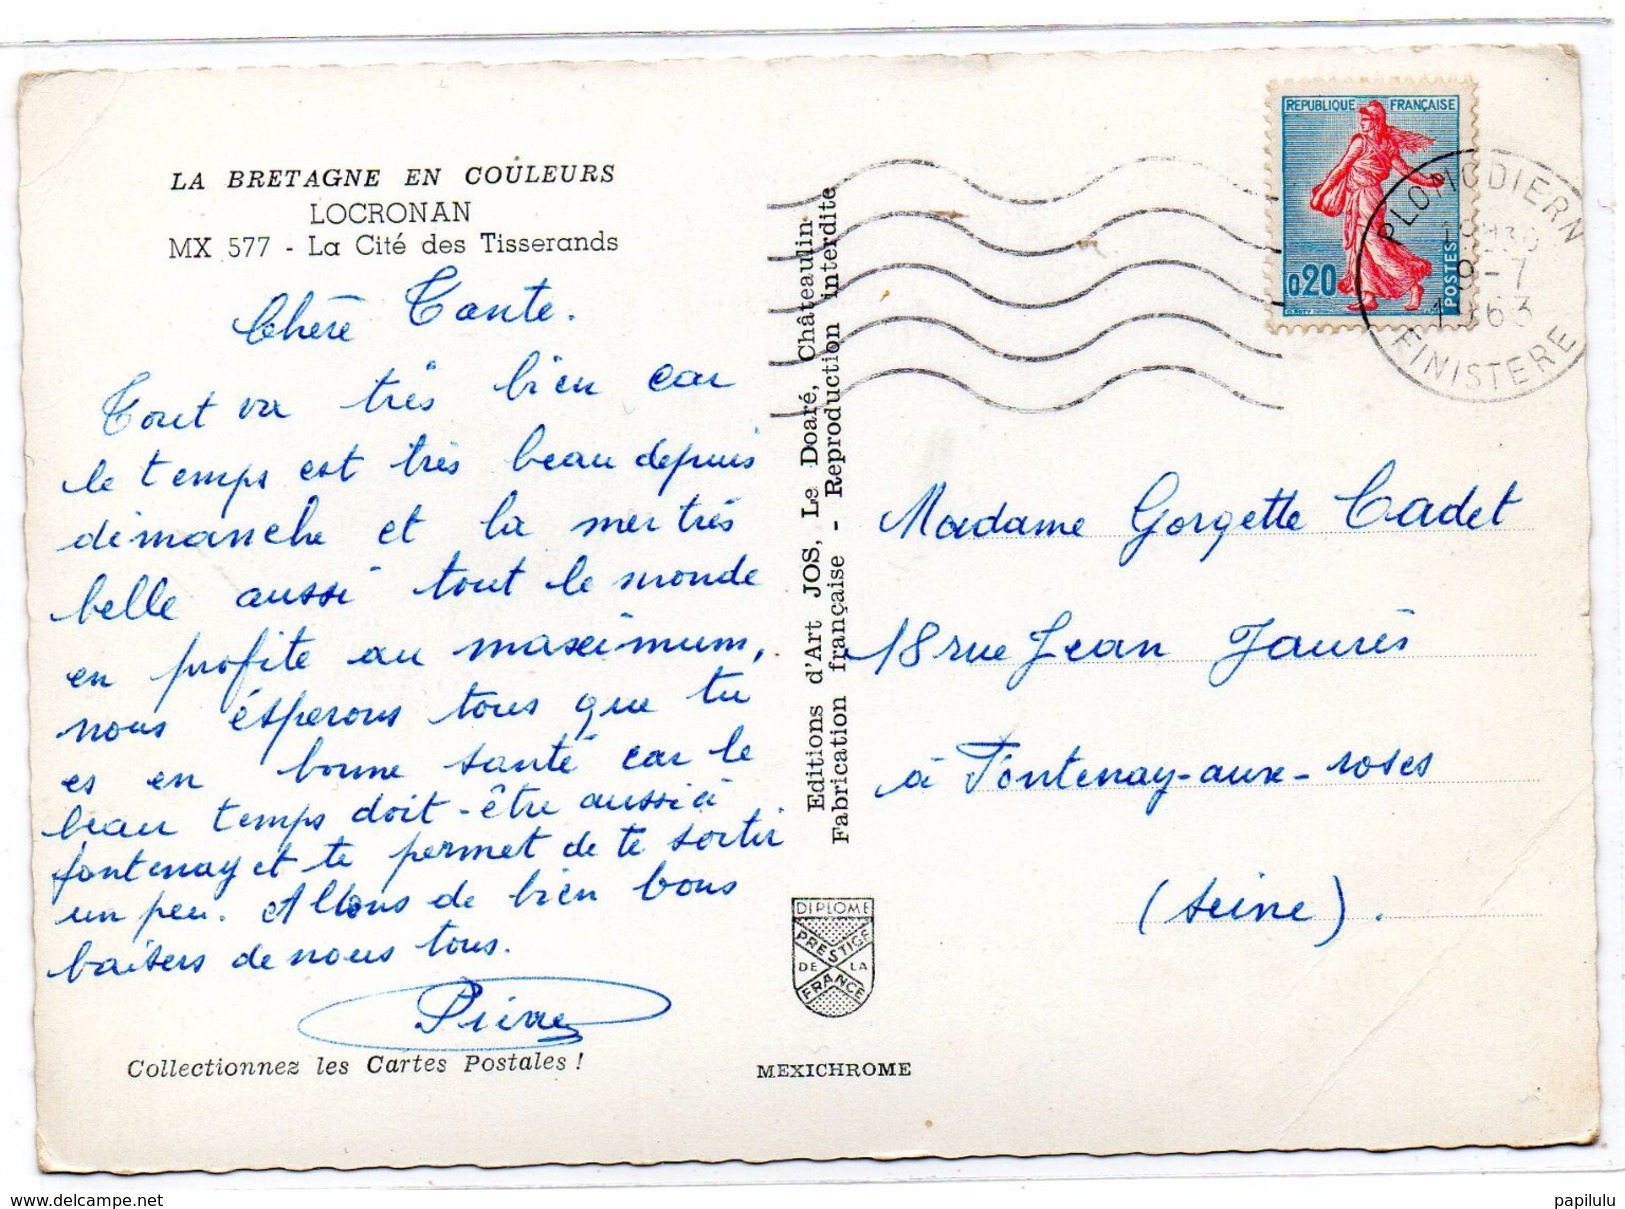 LA BRETAGNE EN COULEURS
LOCRONAN
MX 577 - La Cité des Tisserands
Chère Tante.
Tout va très bien car
le temps est très beau depuis
dimanche et la mer très
belle aussi tout le monde
en profite au maximum,
nous ésperons tous que tu
es en bonne santé car le
beau temps doit-être aussi à
fontenay et te permet de te sortir
un peu. Allons de bien bons
baisers de nous tous.
Pierre
Collectionnez les Cartes Postales !
Editions d'Art JOS, Le Doaré, Châteaulin
Fabrication française - Reproduction interdite
DIPLOME
PRESTIGE
DE LA
FRANCE
MEXICHROME
REPUBLIQUE FRANÇAISE
0,20
POSTES
PLOMODIERN
9-7
1963
FINISTERE
Madame Gorgette Cadet
18 rue Jean Jaurès
à Fontenay-aux-roses
(Seine).
www.delcampe.net
papilulu